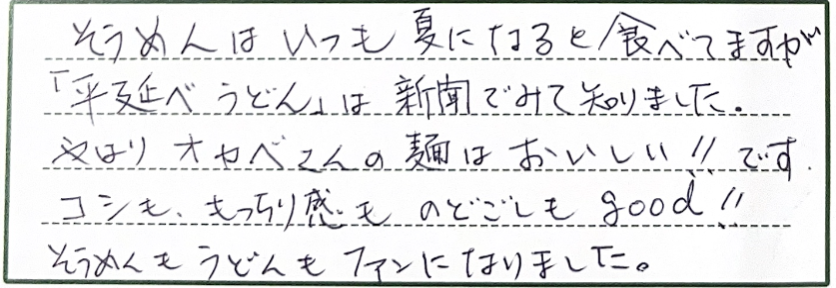 そうめんは いつも 夏になると食べてますが
「平延べうどん」は 新聞でみて知りました。
やはり オカベさんの 麺は おいしい!! です.
コシも、もっちり感も のどごしも good!!
そうめんも うどんも ファンになりました。